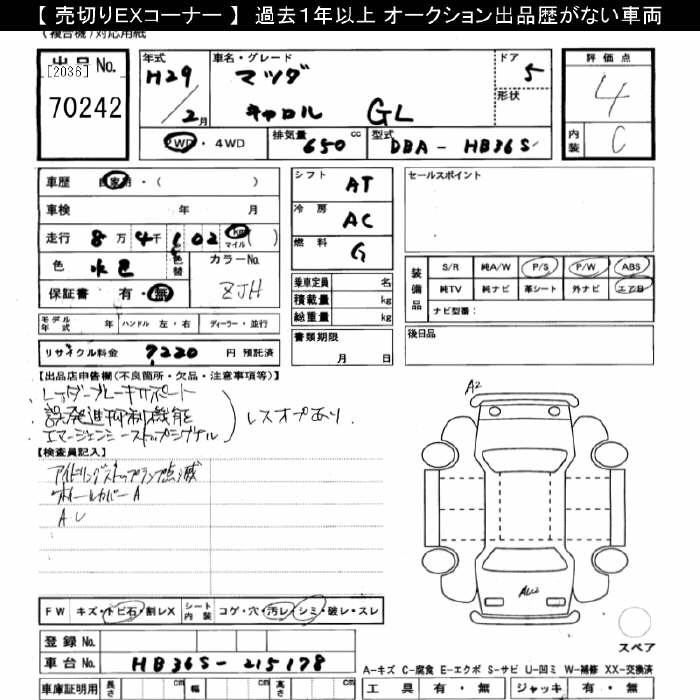 【 売切りEXコーナー 】 過去1年以上 オークション出品歴がない車両
(複合機)対応用紙
出品No.
[2036]
70242
年式
H29
/2月
車名・グレード
マツダ
キャロル GL
ドア
5
形状
評価点
4
内装
C
2WD・4WD
排気量
650 cc
型式
DBA - HB36S
車歴 自家用・( )
車検 年 月
走行 8万4千602 km マイル ( )
色 水色
色替
カラーNo.
ZJH
保証書 有・無
シフト AT
冷房 AC
燃料 G
乗車定員 名
積載量 kg
総重量 kg
書類期限
月 日
セールスポイント
装備品
S/R 純A/W P/S P/W ABS
純TV 純ナビ 革シート 外ナビ エアB
ナビ型番:
後日品
モデル年式 年 ハンドル 左・右 ディーラー・並行
リサイクル料金 7220 円 預託済
【出品店申告欄(不良箇所・欠品・注意事項等)】
レーダーブレーキサポート
誤発進抑制機能
エマージェンシーストップシグナル
レスオプあり.
【検査員記入】
アイドリングストップランプ点滅
ホイールカバーA
AU
A2
AU2
スペア
FW キズ・トビ石・割レX
シート内装 コゲ・穴・汚レ・シミ・破レ・スレ
登録No.
車台No. HB36S - 215178
車庫証明用 長さ cm 幅 cm 高さ cm
A-キズ C-腐食 E-エクボ S-サビ U-凹ミ W-補修 XX-交換済
工具 有・無 ジャッキ 有・無